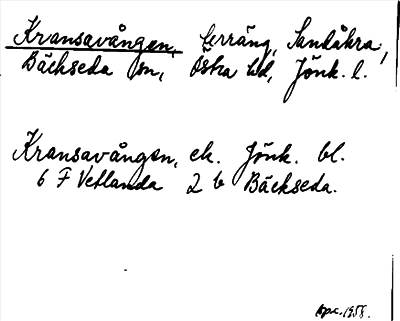 Kransavången, Terräng, Sandåkra,
Bäckseda sn, Östra hd, Jönk. l.
Kransavången, ek. Jönk. bl.
6 F Vetlanda 2 b Bäckseda.
1958.